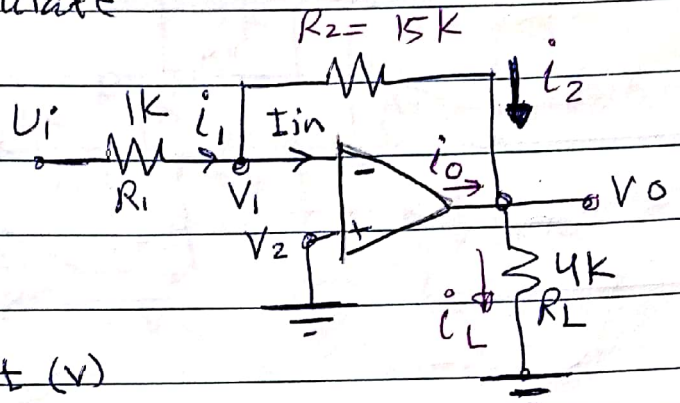 R2= 15K
i2
Ui
1K
i1
Iin
R1
V1
-
io
Vo
V2
+
4K
iL
RL
t (v)